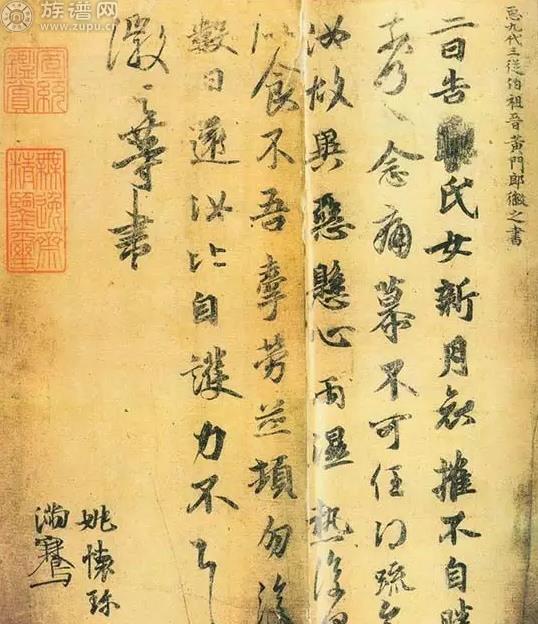 九代三從伯祖晉黃門郎徽之書
二日告氏女新月哀摧不自勝
奈何〻念痛慕不可任得疏
汝故異惡懸心雨濕熱復
似食不吾牽勞並頓勿復
數日還汝比自護力不
徽之等書
姚懷珍
滿騫
族谱网
zupu.cn